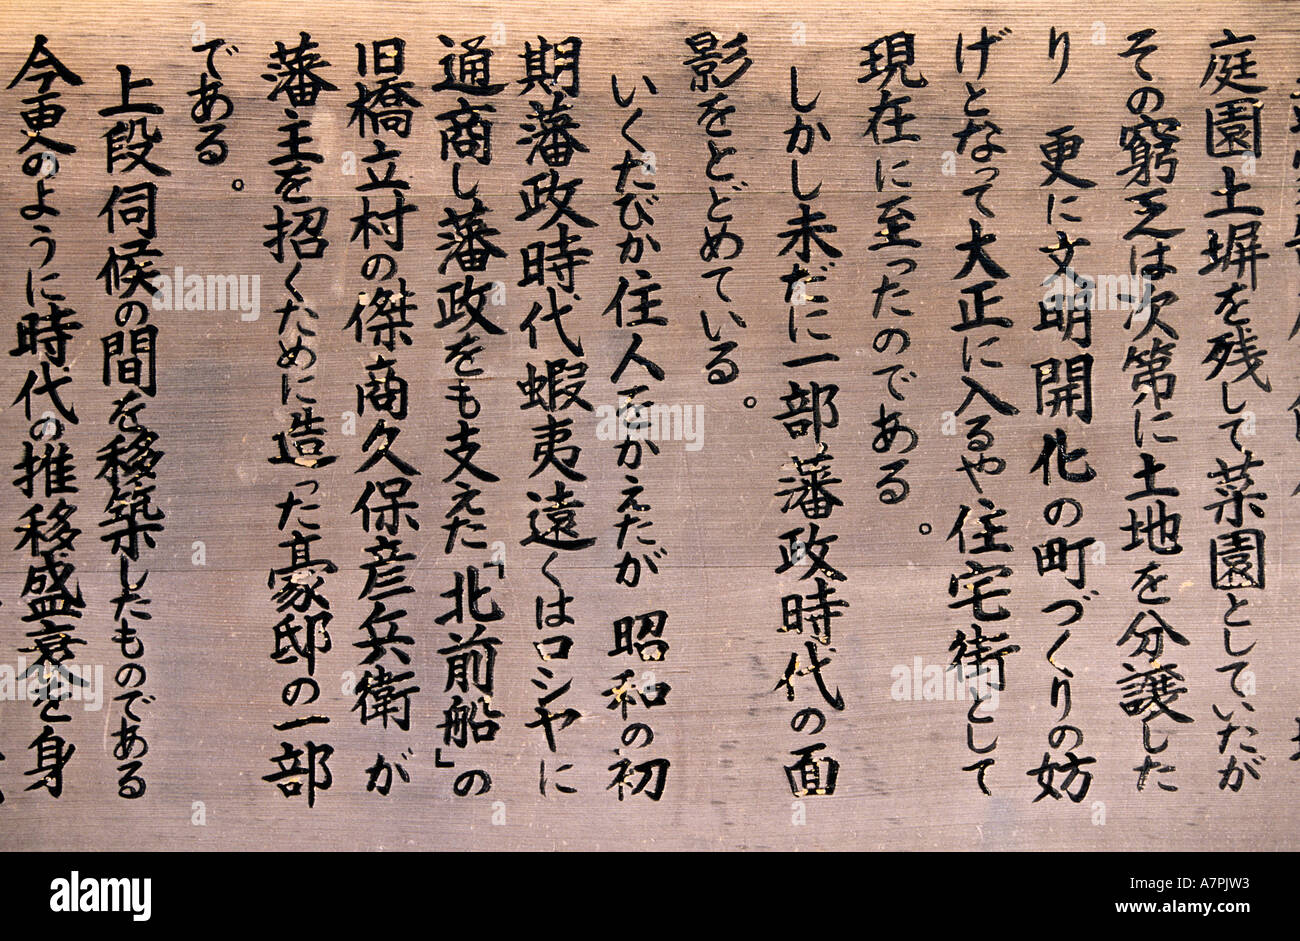 庭園土塀を残して菜園としていたが
その窮乏は次第に土地を分譲した
り　更に文明開化の町づくりの妨
げとなって大正に入るや住宅街として
現在に至ったのである。
しかし未だに一部藩政時代の面
影をとどめている。
いくたびか住人をかえたが　昭和の初
期藩政時代蝦夷遠くはロシヤに
通商し藩政をも支えた「北前船」の
旧橋立村の傑商久保彦兵衛が
藩主を招くために造った豪邸の一部
である。
上段伺候の間を移築したものである
今更のように時代の推移盛衰を身
alamy
Image ID: A7PJW3
www.alamy.com